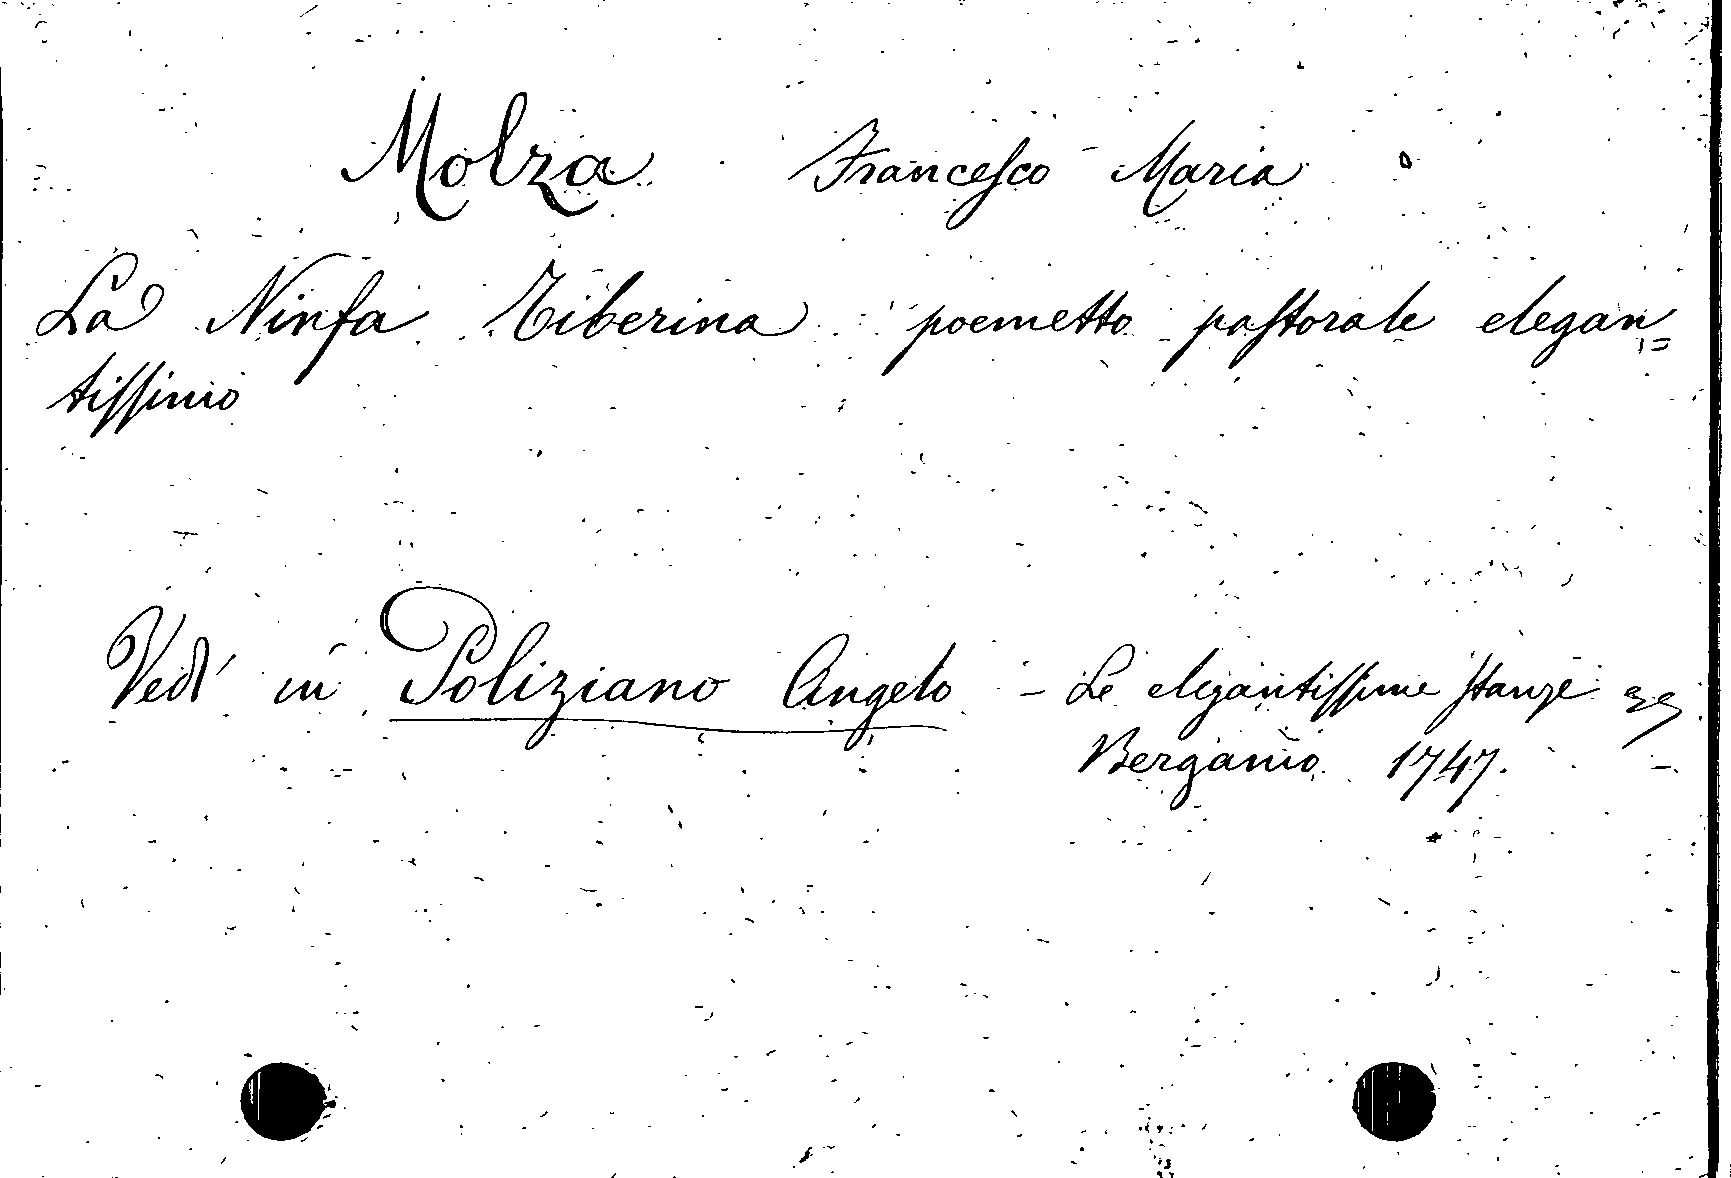 Molza Francesco Maria
La Ninfa Tiberina poemetto pastorale elegan=
tissimo
Vedi in Poliziano Angelo - Le elegantissime stanze
Bergamo 1747.